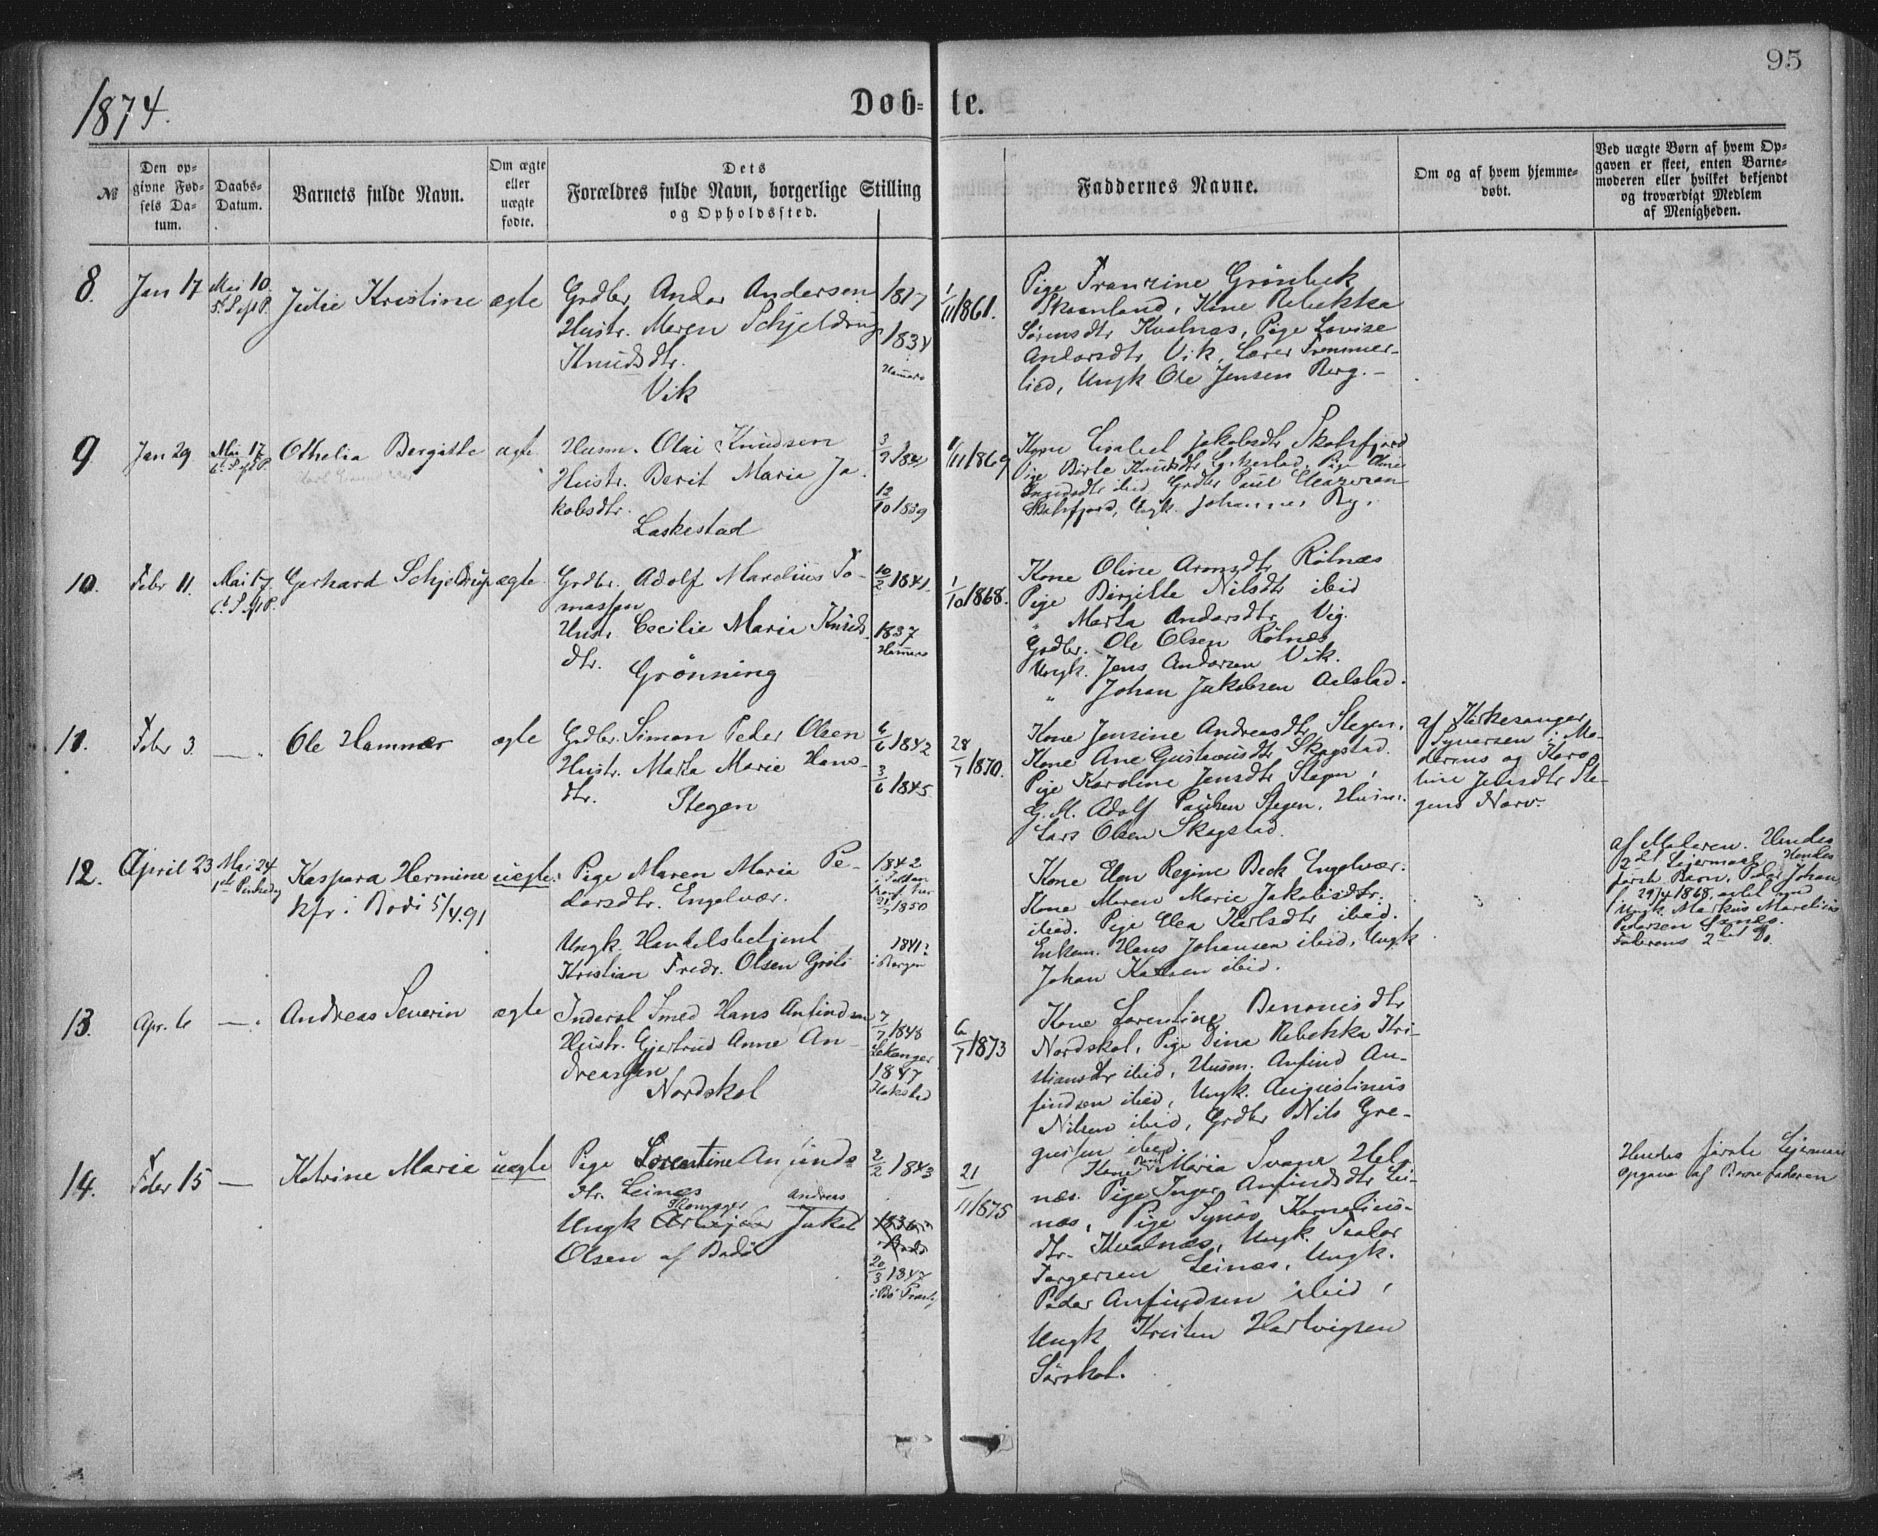 95
1874.
Døb- te.
№
Den op-
givne Fød-
sels Da-
tum.
Daabs-
Datum.
Barnets fulde Navn.
Om ægte
eller
uægte
fødte.
Dets
Forældres fulde Navn, borgerlige Stilling
og Opholdssted.
Faddernes Navne.
Om og af hvem hjemme-
døbt.
Ved uægte Børn af hvem Op-
gaven er skeet, enten Barne-
moderen eller hvilket bekjendt
og troværdigt Medlem
af Menigheden.
8.
Jan 17
Mai 10.
Julie Kristine
ægte
Grdbr. Andor Andersen
Hustr. Maren Schjeldrup
Knudsdtr.
Vik
1817
1834
Hamarø
1/11 1861.
Pige Franzine Grönbek
Skaanland, Kone Rebekka
Sörensdtr Kvalnæs, Pige Lovise
Andorsdtr Vik, Lærer Fremmer-
lied, Ungk Ole Jensen Berg.
9
Jan 29
Mai 17.
Othelia Bergitte
ægte
Husm. Olai Knudsen
Hustr. Berit Maria Ja-
kobsdtr.
Laskestad
12/10 1839
/11 1869
Kone Lisabet Jakobsdtr Skotsfjord
Pige Birte Knudsdtr
ibid, Grdbr Paul
Skotsfjord, Ungk. Johannes
10.
Febr 11.
Mai 17
Gerhard Schjeldrup
ægte
Grdbr. Adolf Mardius To-
massen
Hustr. Cecilie Maria Knuds-
dtr.
Grønning
10/2 1841.
1837
Hamarø
1/10 1868.
Kone Oline Aronsdtr Rölnæs
Pige Birgitte Nilsdtr ibid
" Marta Andorsdtr Vig.
Grdbr. Ole Olsen Rölnæs
Ungk. Jens Andorsen Vik.
" Johan Jakobsen Aalstad.
11.
Febr 3.
—
Ole Hammer
ægte
Grdbr. Simon Peder Olsen
Hustr. Marta Marie Hans-
dtr.
Stegen
6/6 1842
3/6 1845
28/7 1870.
Kone Jensine Andreasdtr Stegen,
Kone Ane Gustavusdtr Skagstad.
Pige Karoline Jensdtr Stegen,
G. M. Adolf Paulsen Stegen, Husm.
Lars Olsen Skagstad.
af Kirkesanger
Syversen i Mo-
derens og Karo-
line Jensdtr Ste-
gens Nærv.
12.
April 23
Mai 24
1ste Pintsedag
Kaspara Hermine
kfr i Bodö 5/4.91
uægte
Pige Maren Maria Pe-
dersdtr. Engelvær.
Ungk Handelsbetjent
Kristian Fredr. Olsen Gröt
1842
1850
1841?
i Bergen
Kone Elen Regine Beck Engelvær.
Kone Maren Marie Jakobsdtr.
ibid. Pige Elen Karlsdtr ibid.
Enkem. Hans Johansen ibid, Ungk
Johan ibid.
af Moderen. Hendes
2det Leiermaal. Hendes
første Barn, Peder Johan,
f 29/4 1868, avlet med
Ungk. Markus Marelius
Pedersen
Faderens 2det Do.
13.
Apr. 6
—
Andreas Severin
ægte
Inderst Smed Hans Anfindsen
Hustr. Gjertrud Anne An-
dreassen
Nordskot
7/7 1848
Lekanger
1847
Flakstad
6/7 1873
Kone Lorentine Benonisdtr
Nordskot, Pige Dina Rebekka Kri-
stiansdtr ibid, Husm. Anfind An-
findsen ibid, Ungk. Augustinus
Nilsen ibid, Grdbr Nils Gre-
gusen ibid.
14.
Febr 15
—
Katrine Marie
uægte
Pige Lorentine Anfinds-
dtr. Leines
Skomager Andreas
Ungk Arbejder Jakob
Olsen af Bodö
2/2 1843
1836
Bodö
20/3 1847
21/11 1875
Kone Maria Svane Hel-
næs. Pige Inger Anfindsdtr Lei-
næs, Pige Synös Kornelius-
dtr. Kvalnæs, Ungk. Tealor
Torgersen Leines, Ungk.
Peder Anfindsen ibid,
Ungk Kristen Hartvigsen
Sørskot.
Hendes første Leiermaal
opgave af Barnefaderen